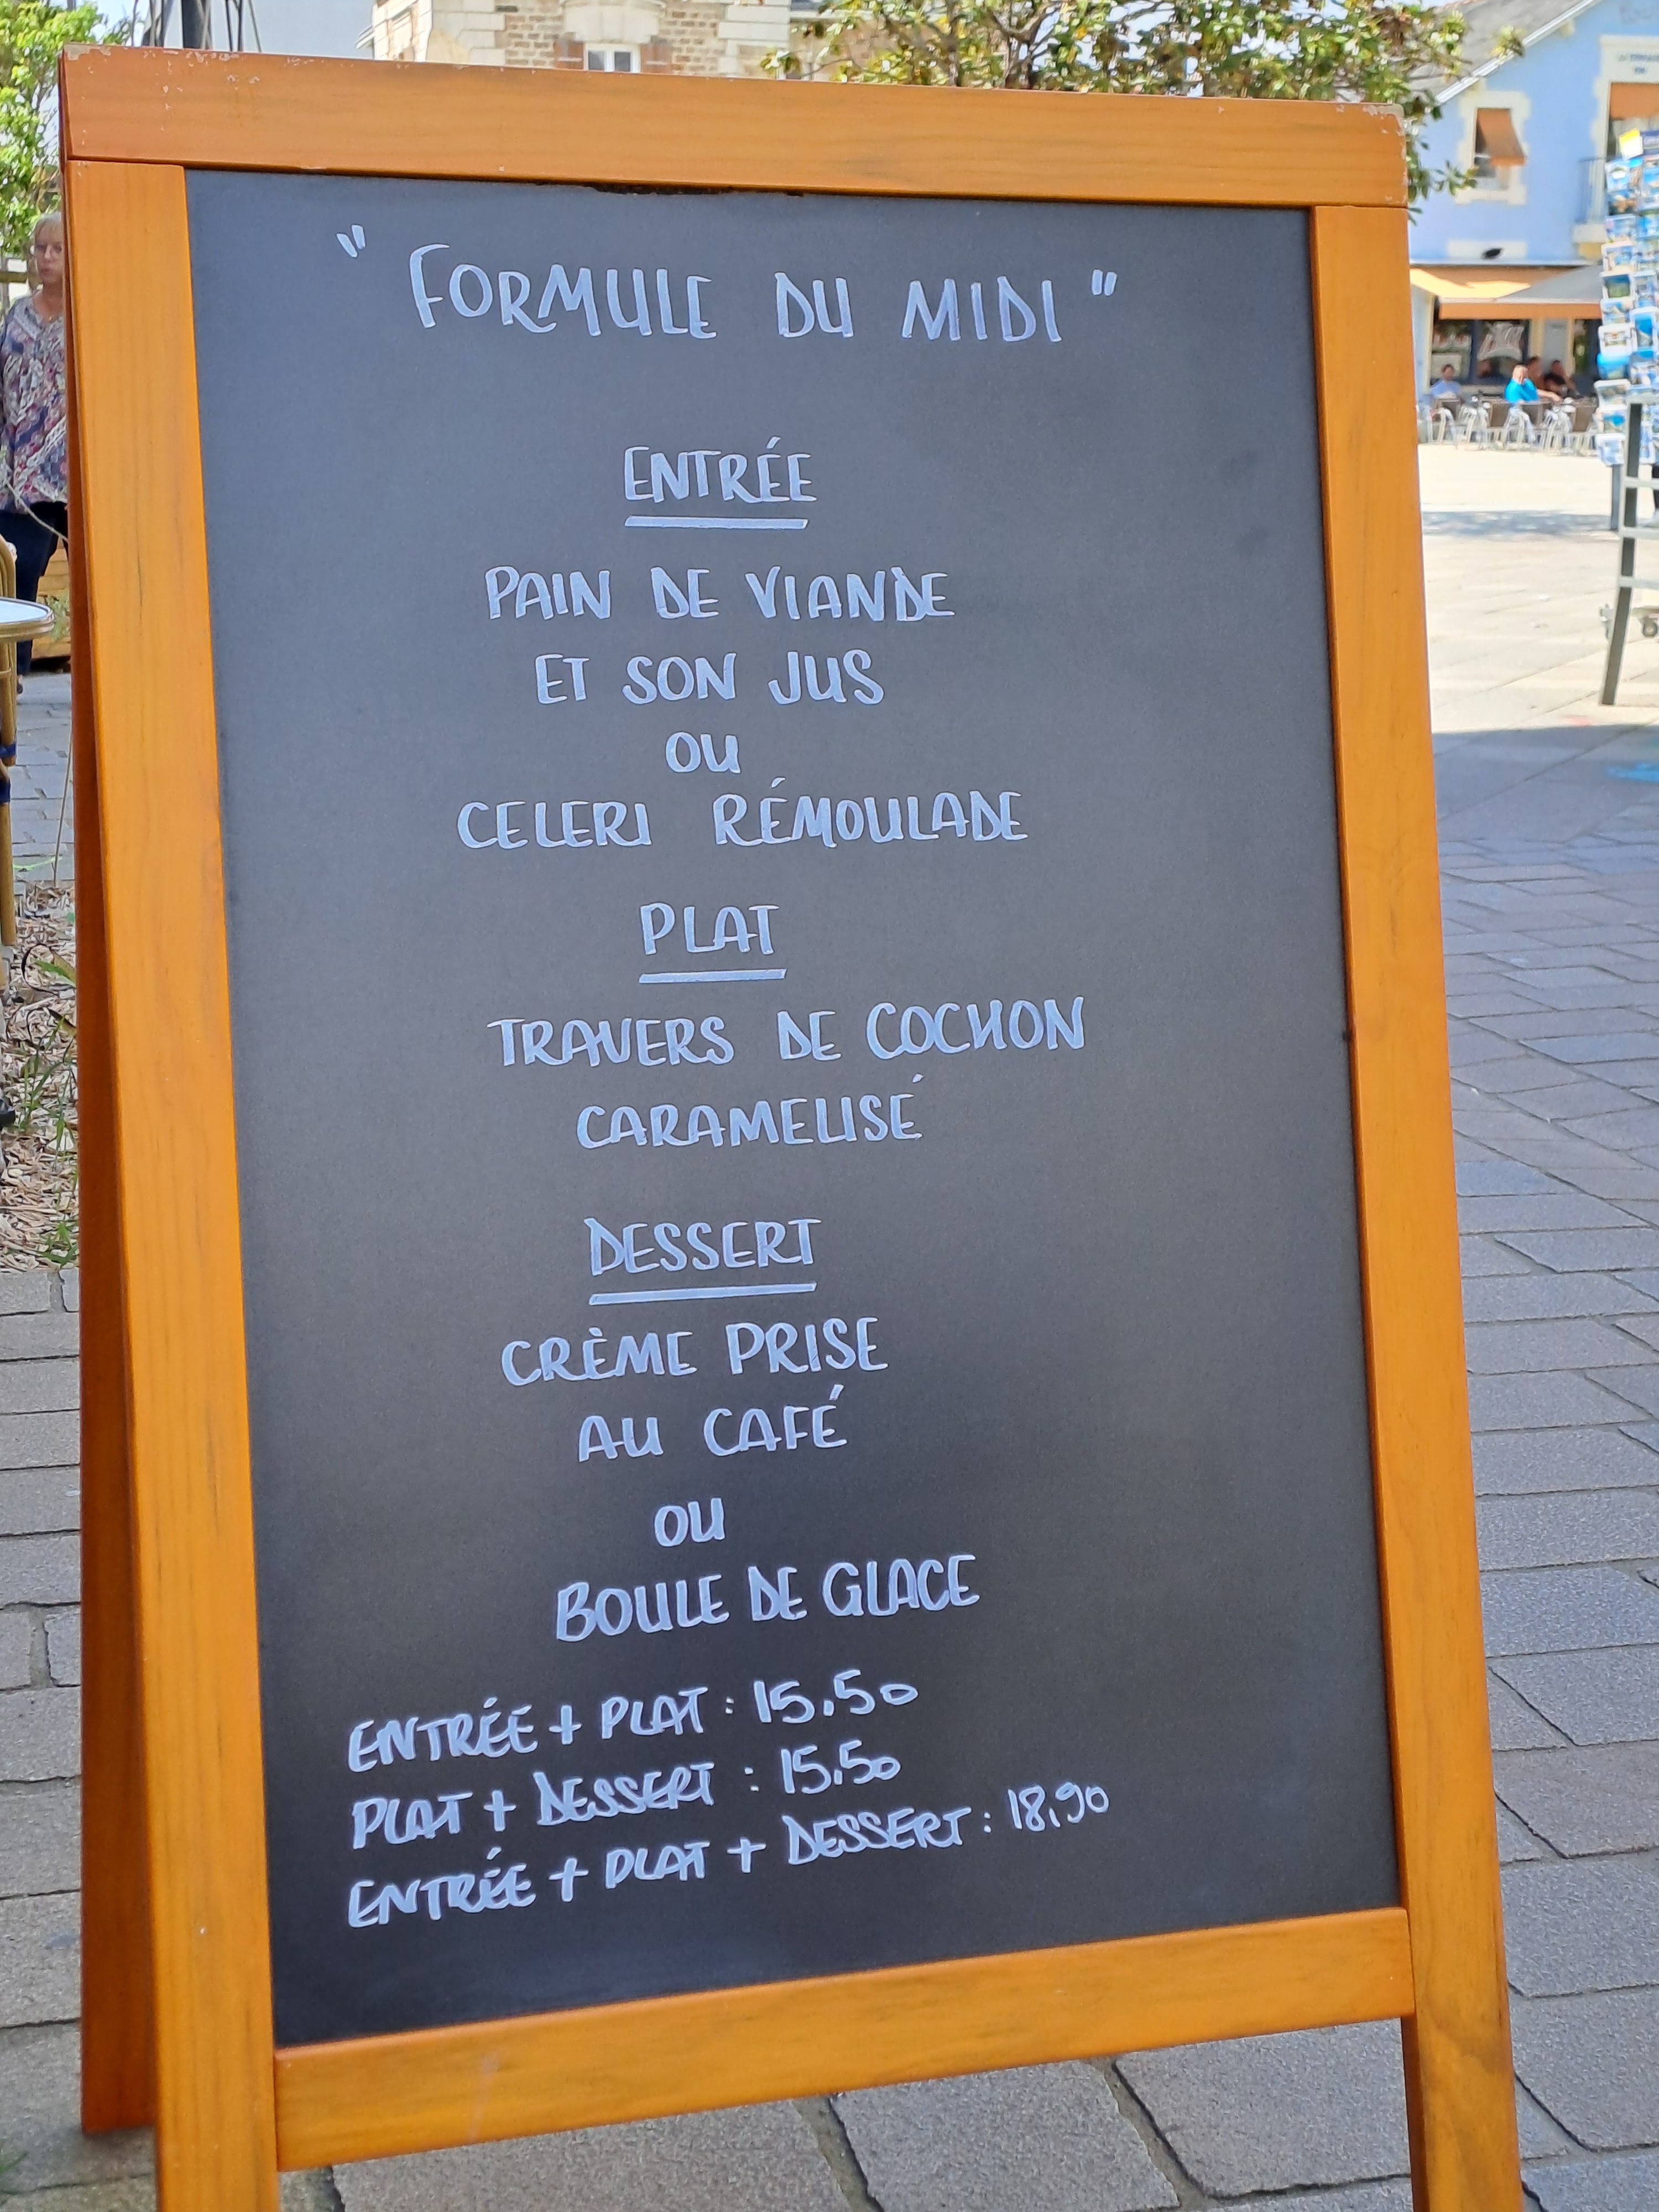 " FORMULE DU MIDI "
ENTRÉE
PAIN DE VIANDE
ET SON JUS
OU
CELERI RÉMOULADE
PLAT
TRAVERS DE COCHON
CARAMELISÉ
DESSERT
CRÈME PRISE
AU CAFÉ
OU
BOULE DE GLACE
ENTRÉE + PLAT : 15.50
PLAT + DESSERT : 15.50
ENTRÉE + PLAT + DESSERT : 18.90